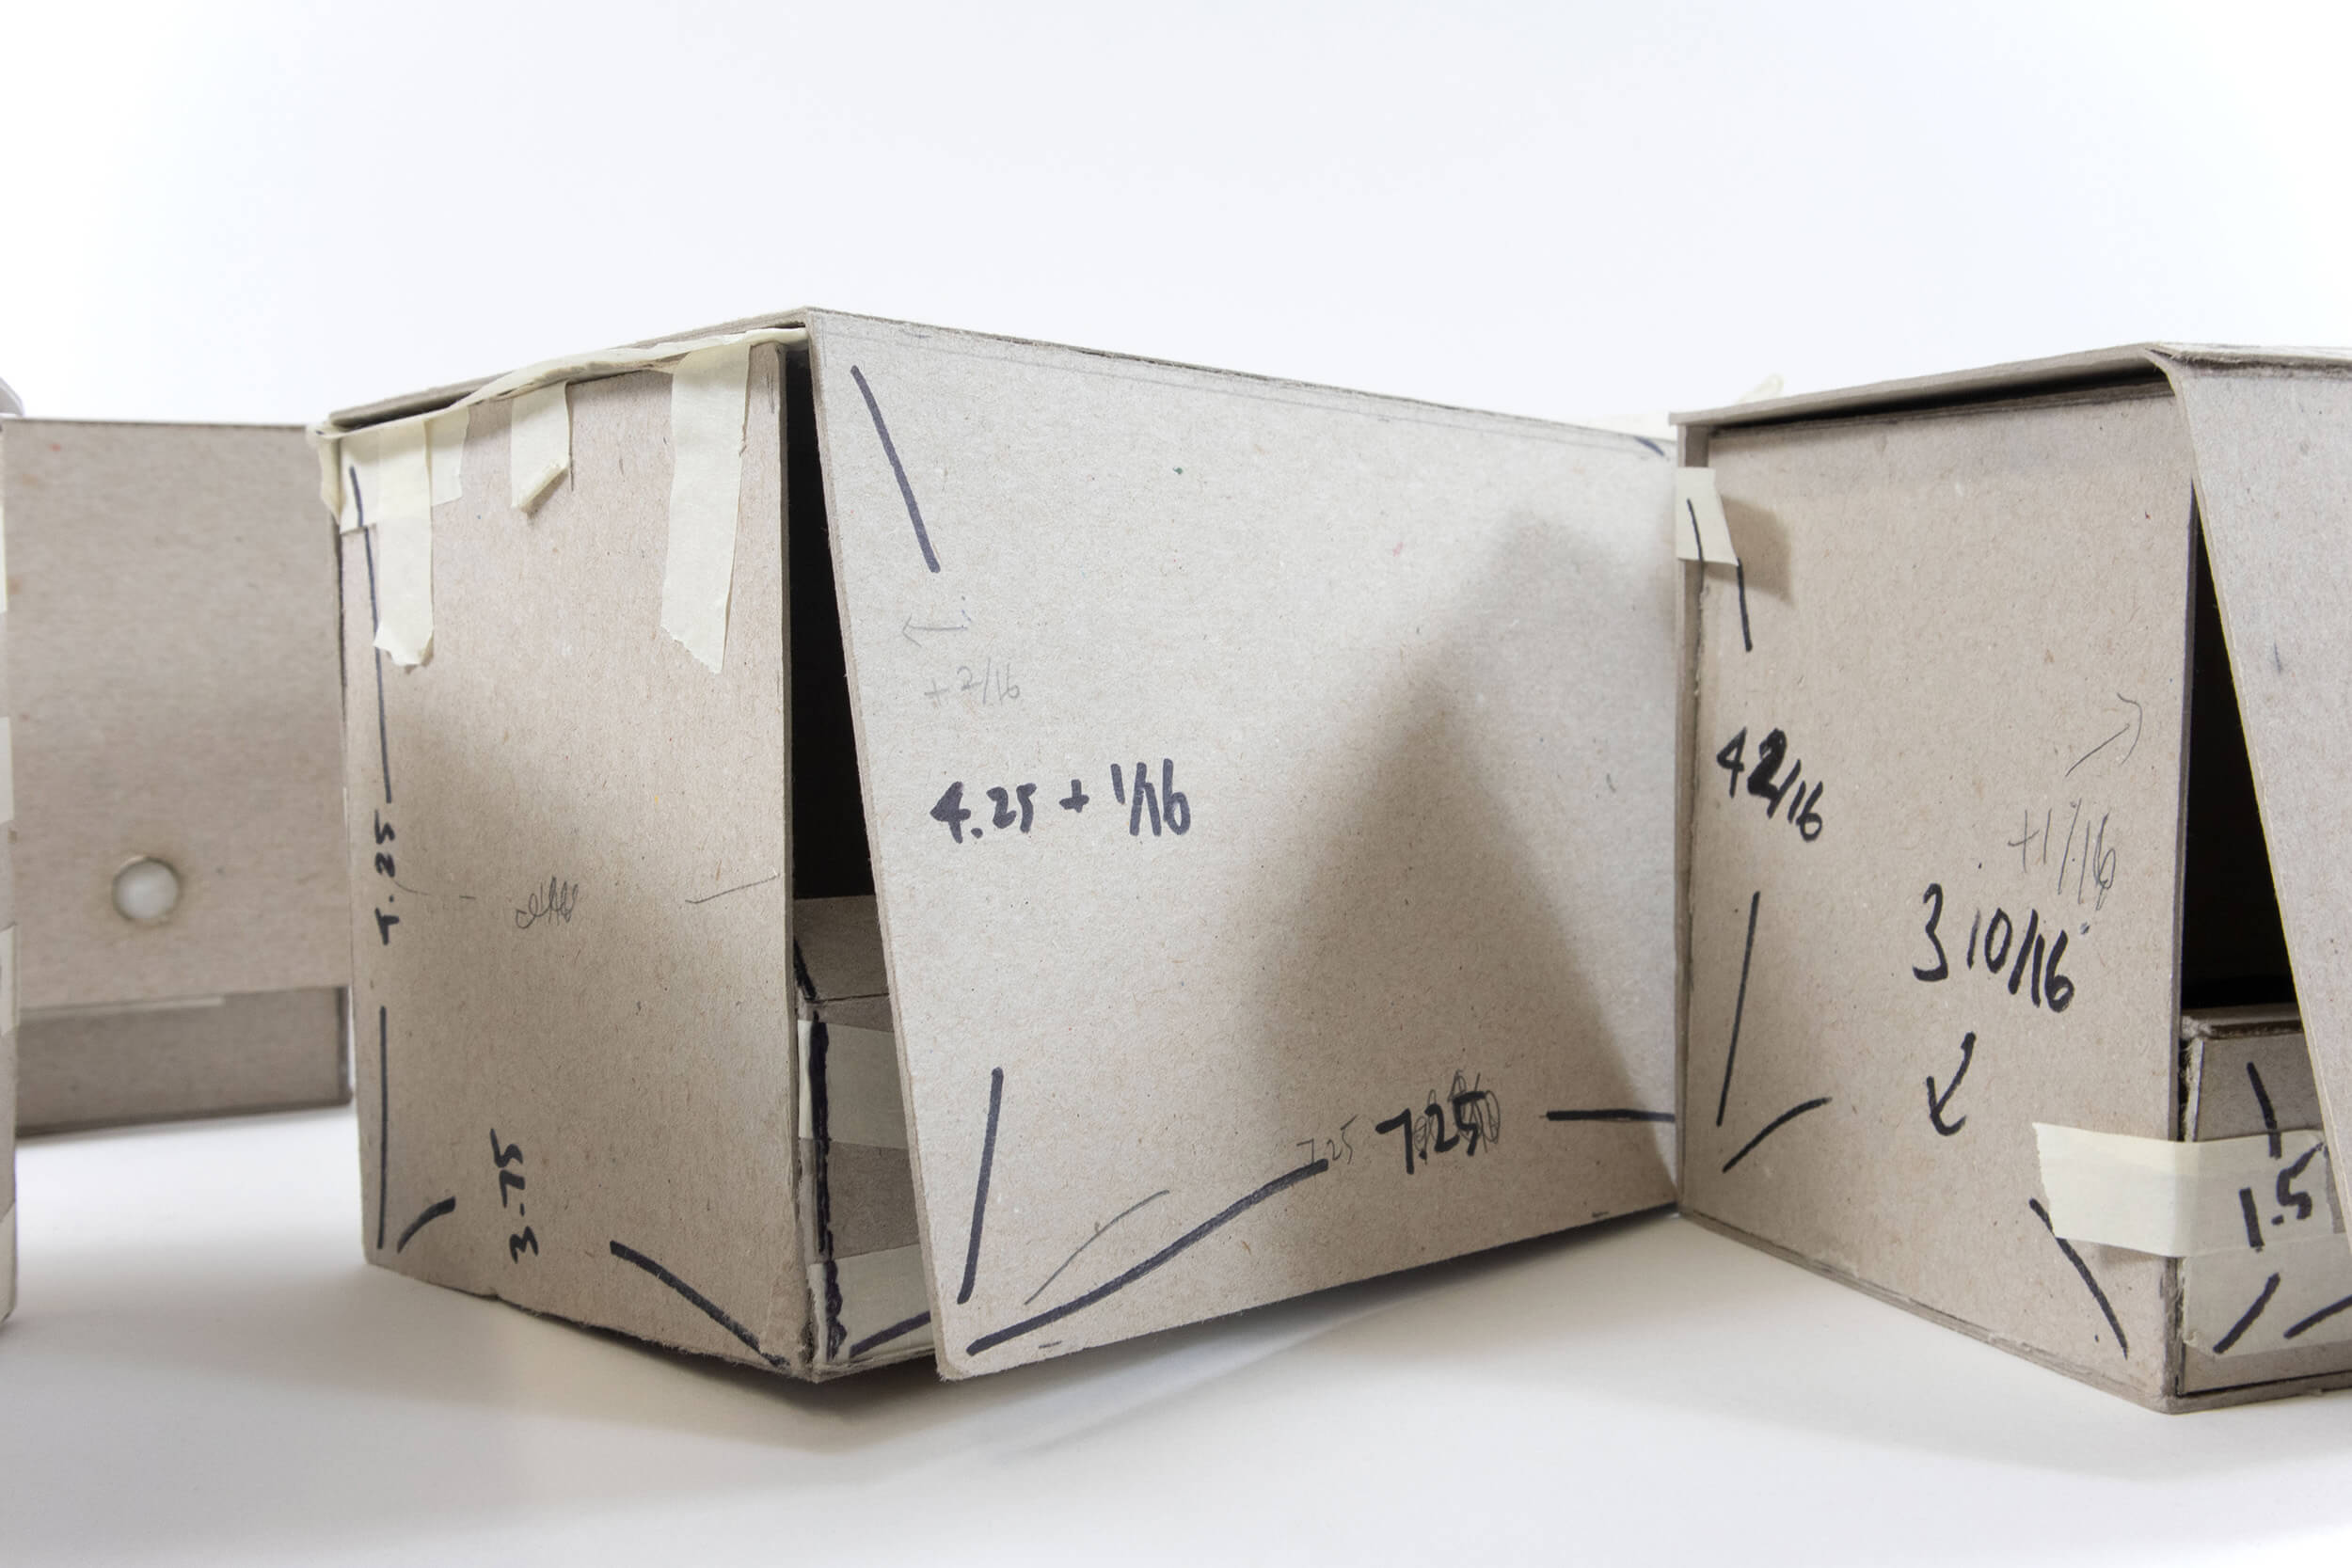 4.25
3.75
+2/16
4.25 + 1/16
7.25 7.25
4 2/16
+1/16
3 10/16
1.5